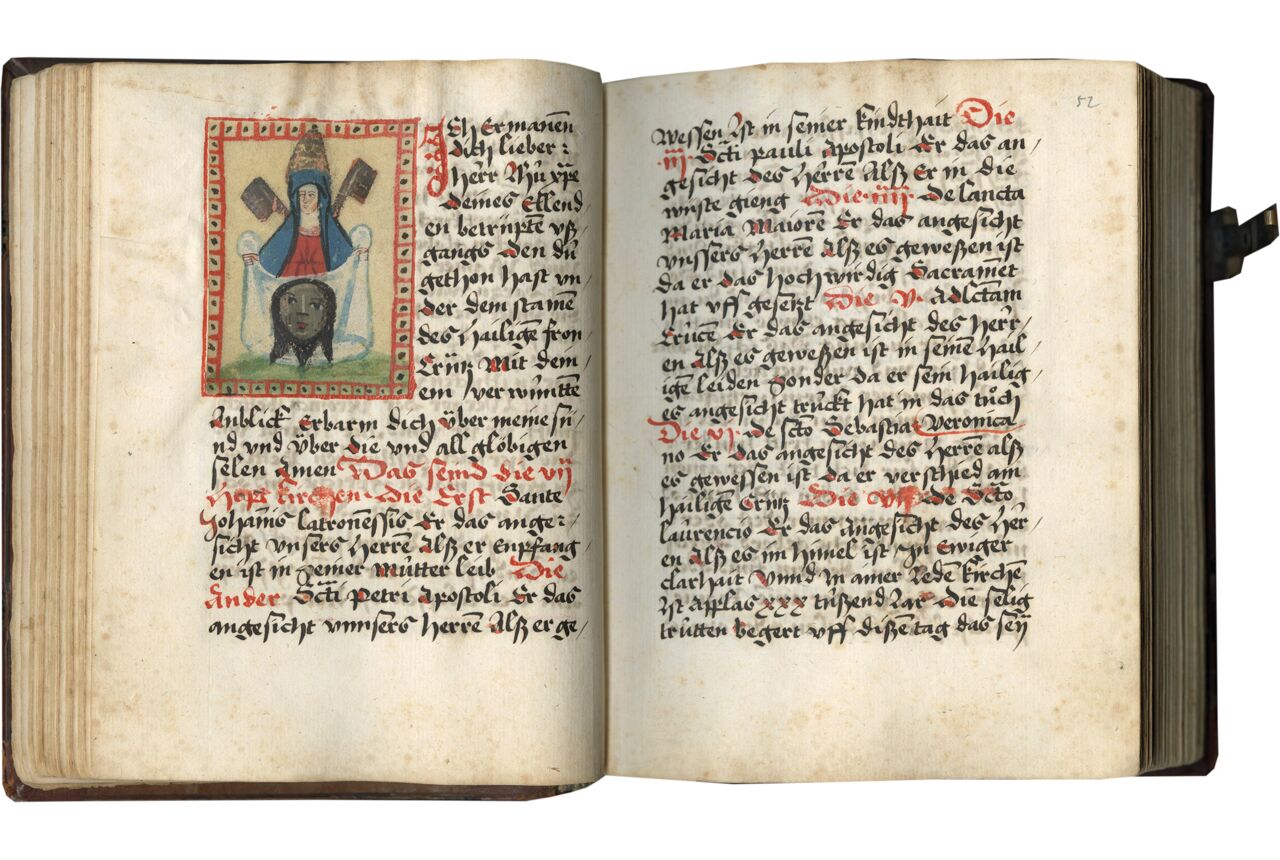 Ich Ermanen
dich lieber
herr Jhū xp̄e
deines Ellend/
en betrüpten vß/
gangs den dů
gethon hast vn/
der dem stamē
des hailigē fron/
Crütz Mit dem/
em verwůntē
Anblick Erbarm dich über meine sü/
nd vnd über die vnd all glöbigen
selen Amen Was seind die vij
hopt kirchen Die Erst Sante
Johanis latronēssis Er das ange/
sicht vnsers herrē Alß er Enpfang/
en ist in seiner Mütter leib Die
Ander Scti petri Apostoli Er das
angesicht vnnsers herrēn Alß er ge/
52
wessen Ist in seiner kindthait Die
.iij. Scti pauli Apostoli Er das an/
gesicht des herrē Alß Er in die
wüste gieng Die .iiij. De sancta
Maria Maiorē Er das angesicht
vnssers herrē Alß es geweßen ist
da er das hochwirdig Sacramēt
hat vff gesetzt Die .v. Ad sctam
Crucē Er das angesicht des herr/
en Alß es geweßen ist in seinē hail/
igē leiden Sonder da er sein hailig/
es angesicht trůckt hat in das tůch
Die vj. de scto Sebastia/ Veronica
no Er das angesicht des herrē alß
es gewessen ist da er verschied am
hailigē Crütz Die vij De Scto
laurencio Er das Angesicht des her/
en Alß es im himel ist Jn Ewiger
clarhait Vnnd in ainer Jedē kirchē
Ist Applas xxx tußend Jar Die selig
trütten begert vff dißē tag das sey